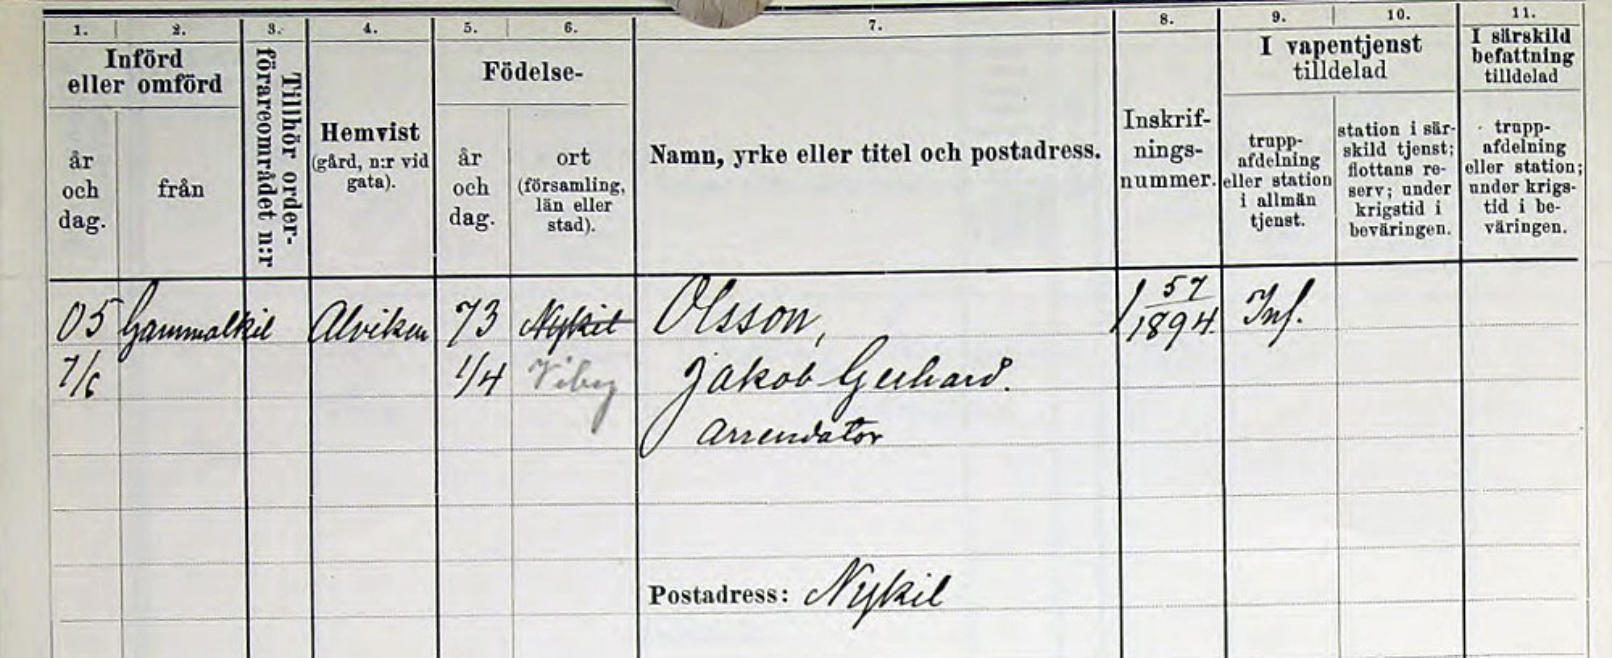 1. 2. 3. 4. 5. 6. 7. 8. 9. 10. 11.
Införd
eller omförd
år
och
dag.
från
Tillhör order-
förareområdet n:r
Hemvist
(gård, n:r vid
gata).
Födelse-
år
och
dag.
ort
(församling,
län eller
stad).
Namn, yrke eller titel och postadress.
Inskrif-
nings-
nummer.
I vapentjenst
tilldelad
trupp-
afdelning
eller station
i allmän
tjenst.
station i sär-
skild tjenst;
flottans re-
serv; under
krigstid i
beväringen.
I särskild
befattning
tilldelad
trupp-
afdelning
eller station;
under krigs-
tid i be-
väringen.
05 Gammalkil Alviken 73 Nykil Olsson, 57/1894 Inf.
7/6 1/4 Viby Jakob Gerhard.
Arrendator
Postadress: Nykil